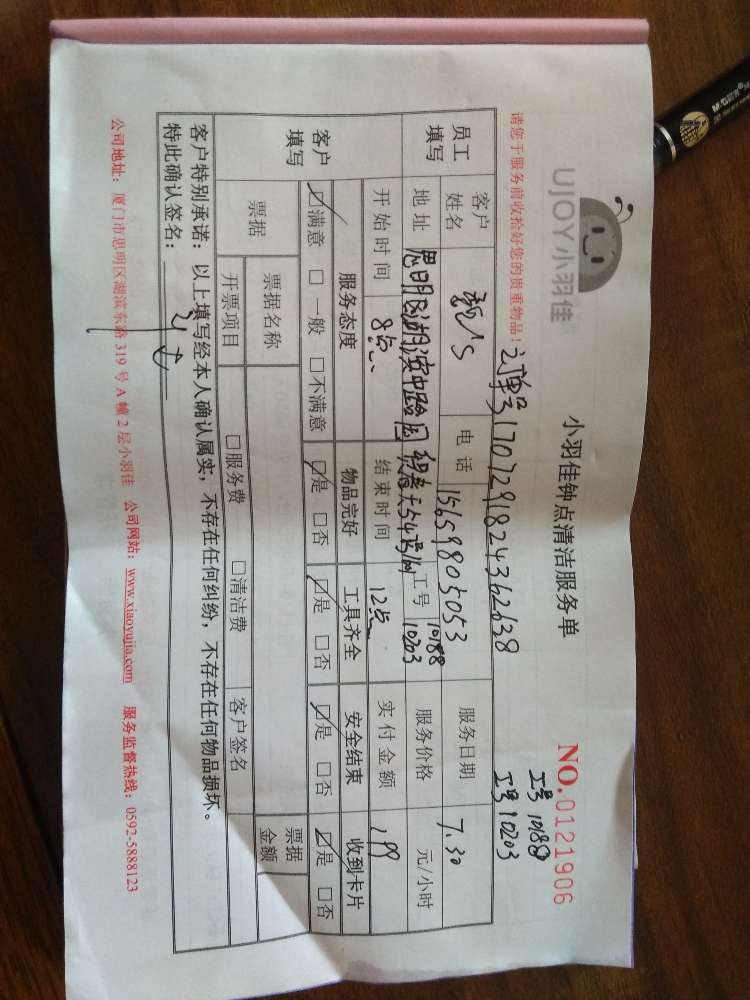 UJOY小羽佳
小羽佳钟点清洁服务单
NO.0121906
工号 10188
工号 10203
请您于服务前收拾好您的贵重物品！
订单号1707291824362638
员工填写
客户姓名
电话 15659805053
服务日期 7.30
地址 思明区湖滨中路
工号 10188 10203
服务价格 元/小时
开始时间 8点
结束时间 12点
实付金额 199
客户填写
服务态度 物品完好 工具齐全 安全结束 收到卡片
☑满意 □一般 □不满意 ☑是 □否 ☑是 □否 ☑是 □否 ☑是 □否
票据
票据名称
票据金额
开票项目 □服务费 □清洁费 客户签名
客户特别承诺：以上填写经本人确认属实，不存在任何纠纷，不存在任何物品损坏。
特此确认签名：
公司地址：厦门市思明区湖滨东路 319 号 A 幢 2 层小羽佳 公司网站：www.xiaoyujia.com 服务监督热线：0592-5888123